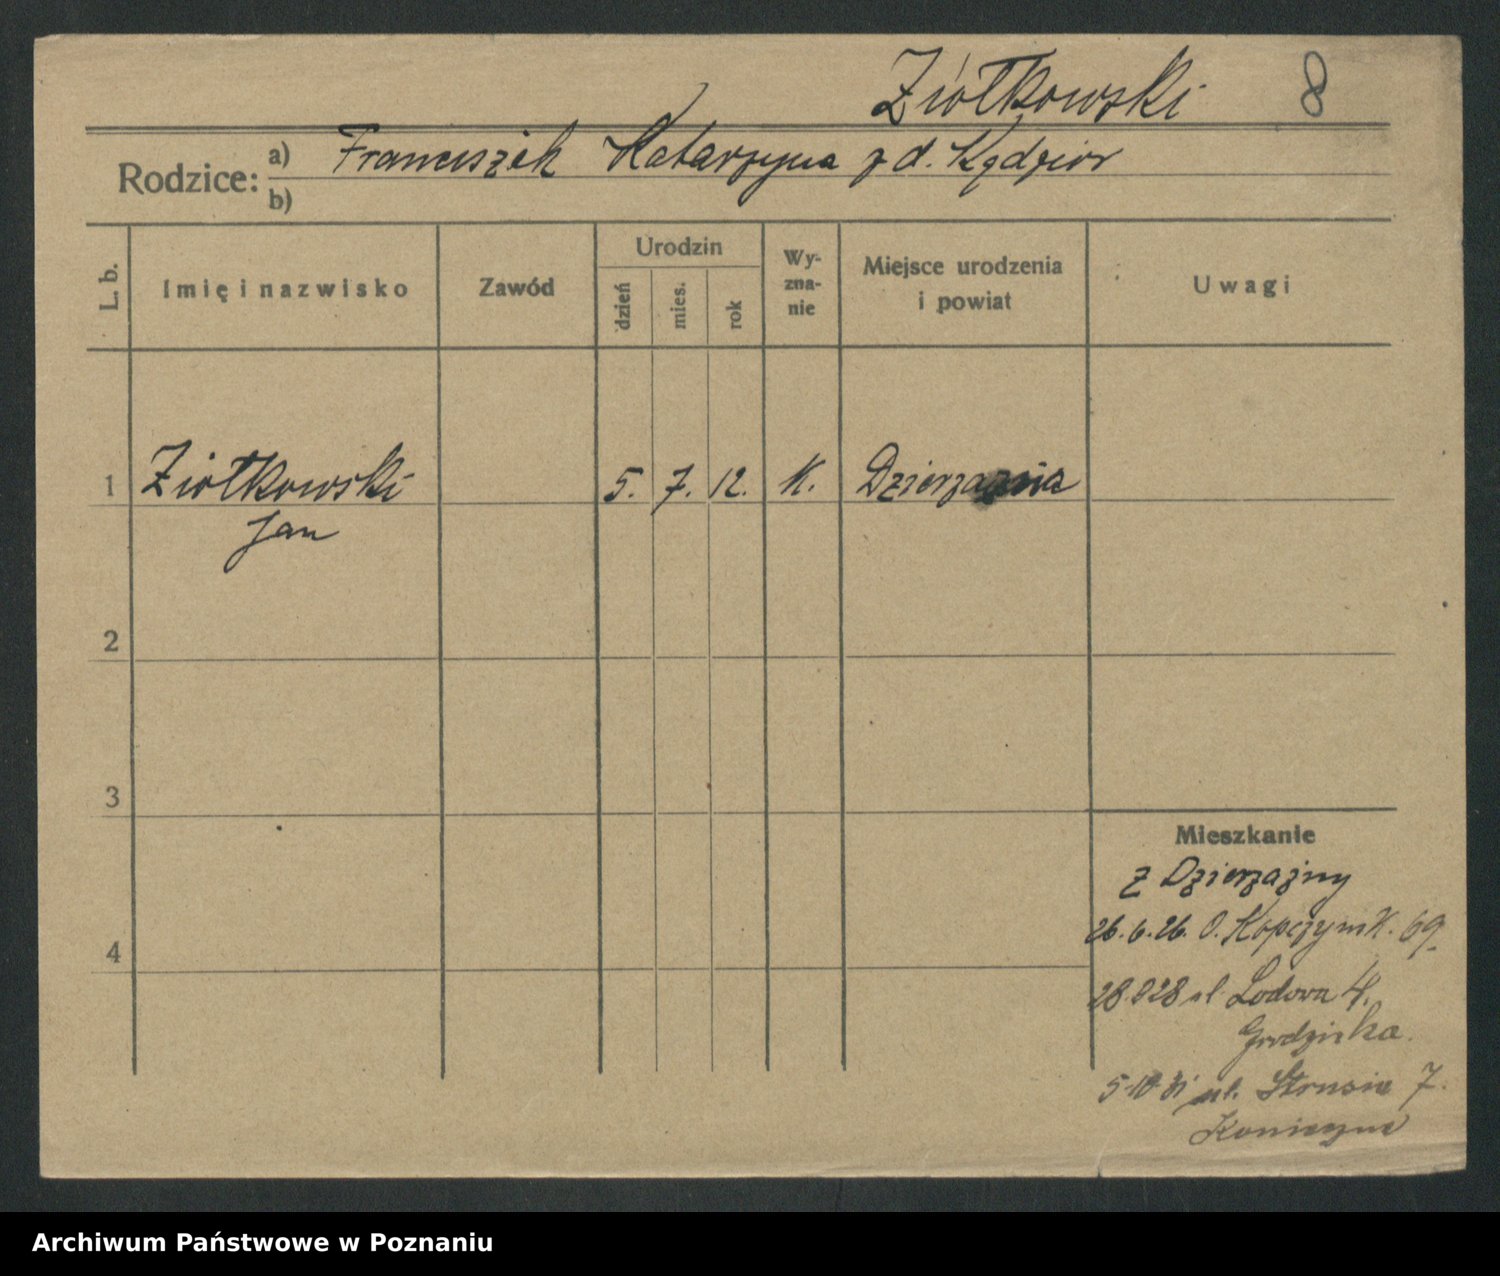 Ziółkowski 8
Rodzice: a) Franciszek Katarzyna z d. Kędzior
b)
L. b. Imię i nazwisko Zawód Urodzin dzień mies. rok Wy-zna-nie Miejsce urodzenia i powiat Uwagi
1 Ziółkowski 5. 7. 12. K. Dzierzaznia
Jan
2
3
Mieszkanie
z Dzierzazny
4 26.6.26. O. Kopczyńsk. 69.
ul. Lodowa 4.
Grodziska.
5-10-31 ul. Strusia 7.
Konieczne
Archiwum Państwowe w Poznaniu